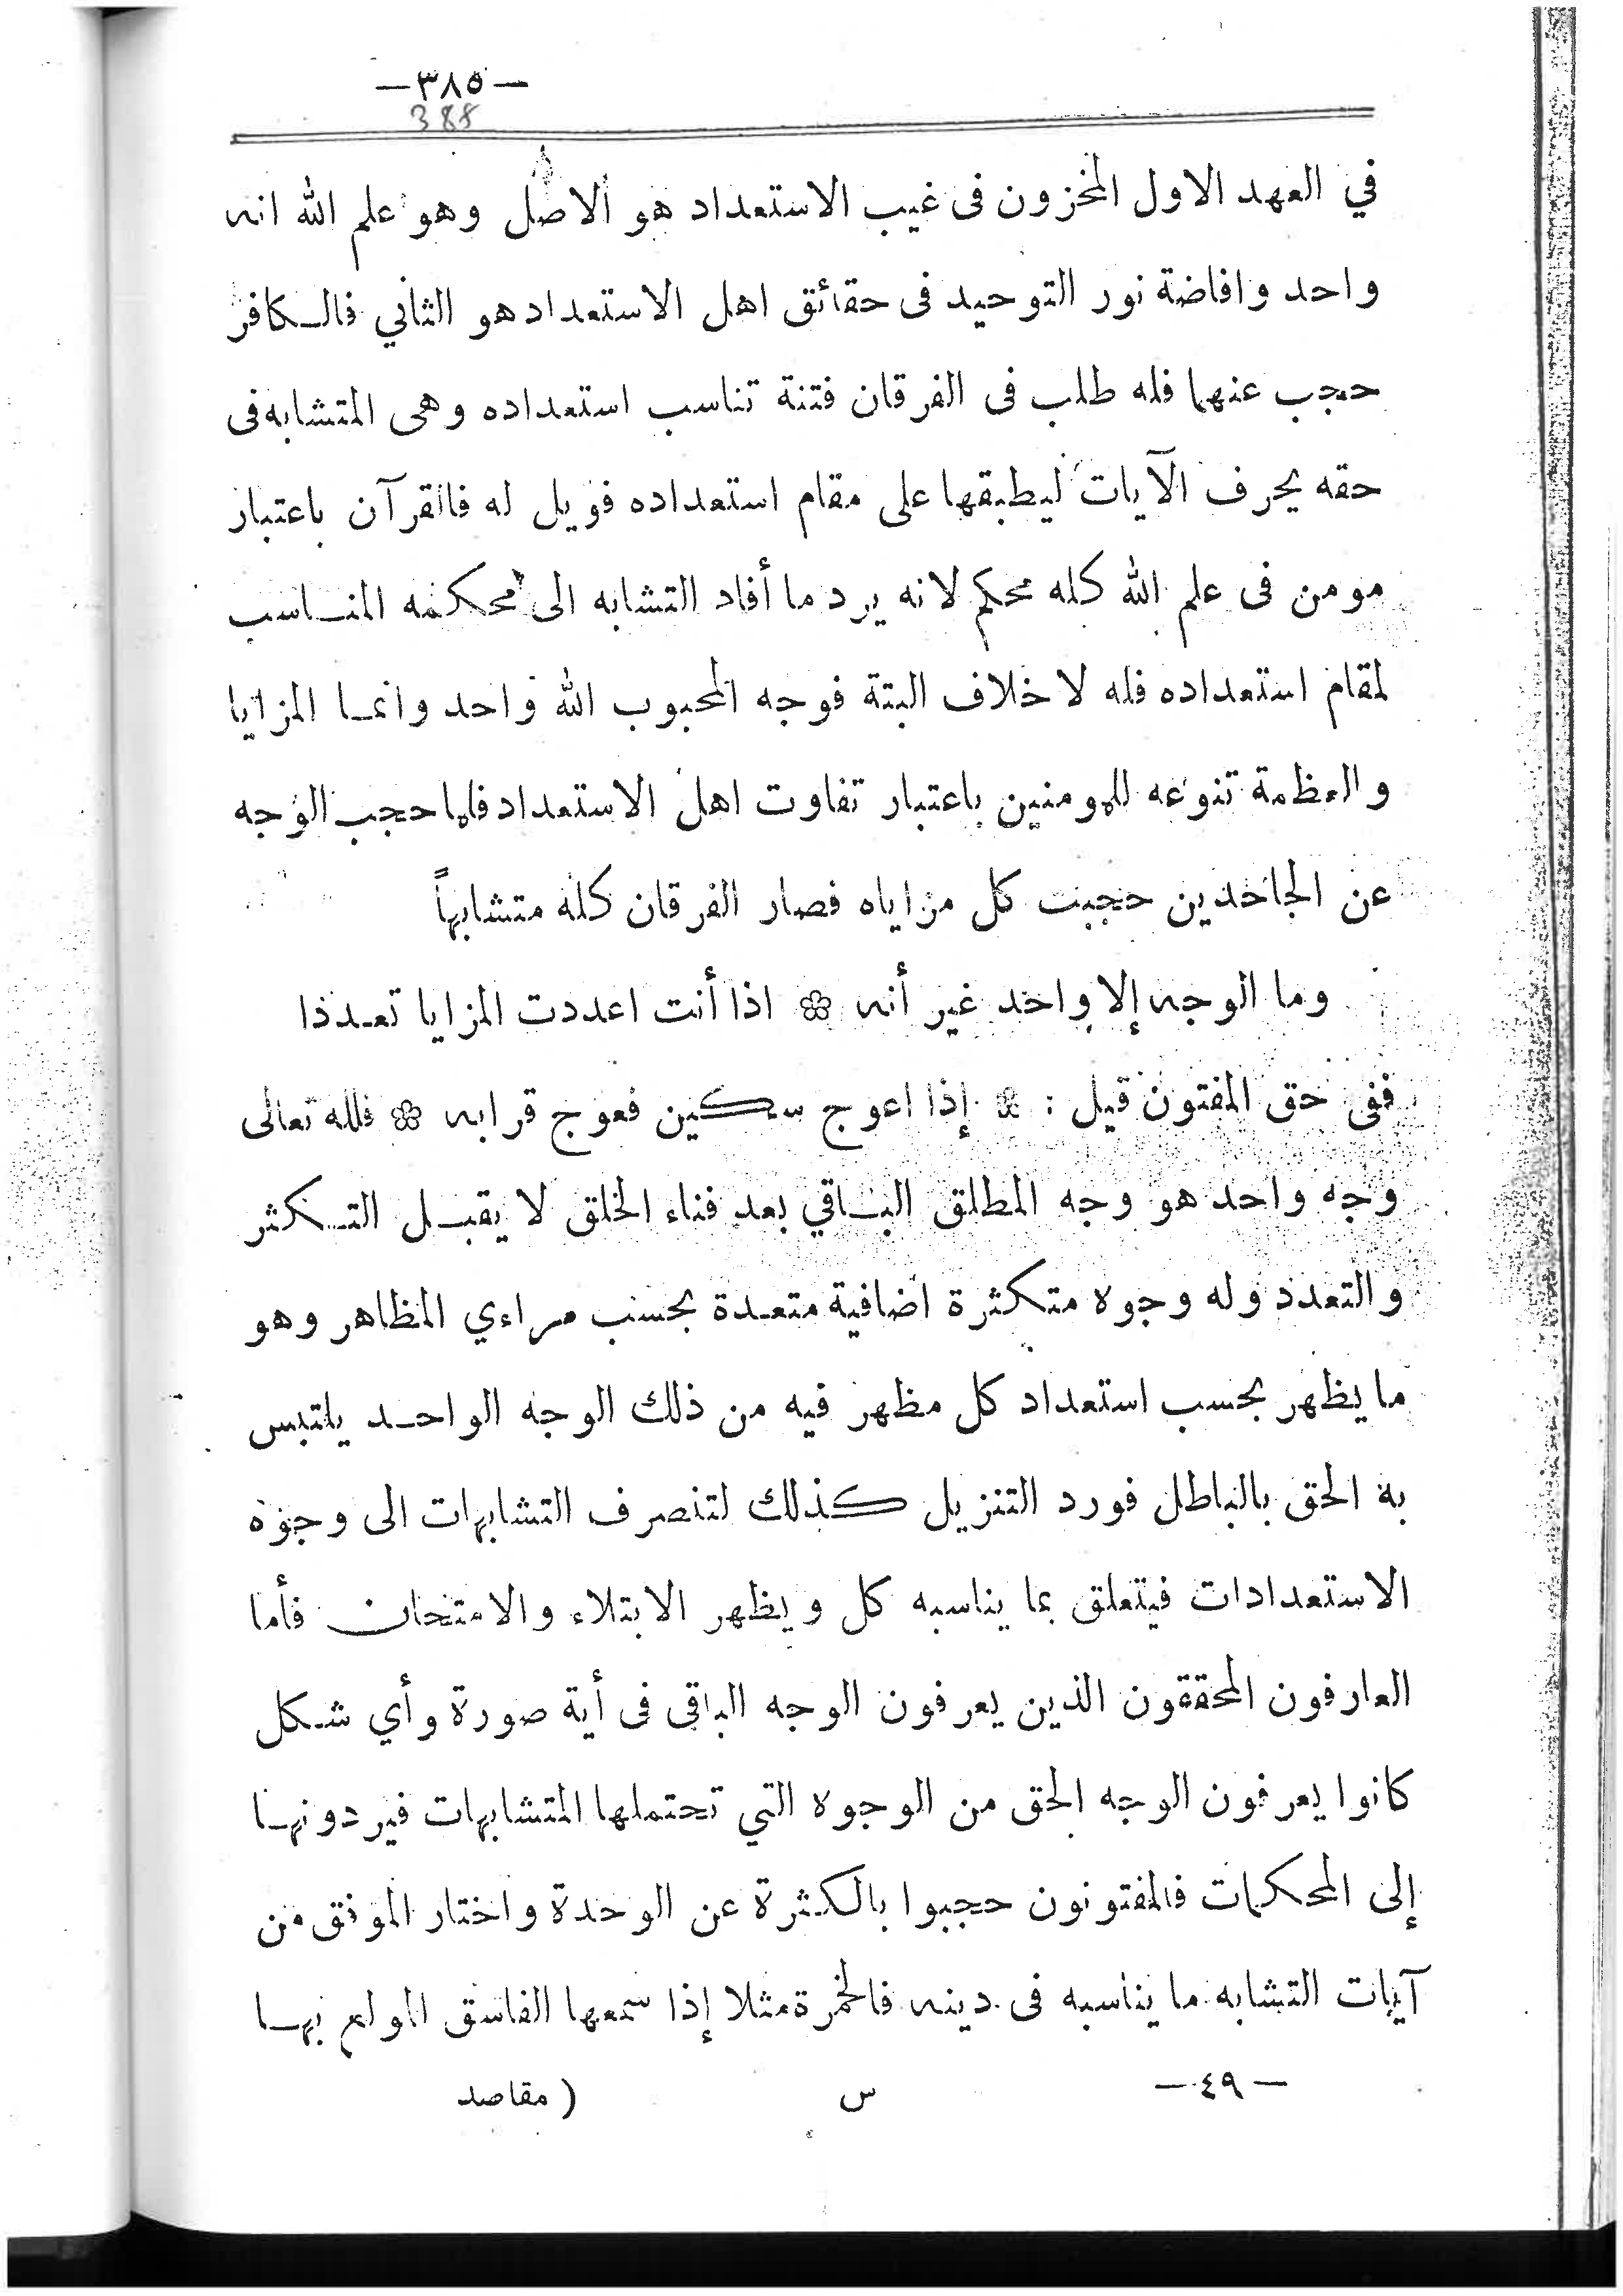 —٣٨٥—
388
في العهد الاول المخزون فى غيب الاستعداد هو الاصل وهو علم الله انه
واحد وافاضة نور التوحيد فى حقائق اهل الاستعداد هو الثاني فالكافر
حجب عنهما فله طلب فى الفرقان فتنة تناسب استعداده وهى المتشابه فى
حقه يحرف الآيات ليطبقها على مقام استعداده فويل له فالقرآن باعتبار
مومن فى علم الله كله محكم لانه يرد ما أفاد التشابه الى محكمه المناسب
لمقام استعداده فله لا خلاف البتة فوجه المحبوب الله واحد وانما المزايا
والعظمة تنوعه للمومنين باعتبار تفاوت اهل الاستعداد فلما حجب الوجه
عن الجاحدين حجبت كل مزاياه فصار الفرقان كله متشابهاً
وما الوجه إلا واحد غير أنه ۞ اذا أنت اعددت المزايا تعددا
ففى حق المفتون قيل : ۞ إذا اعوج سكين فعوج قرابه ۞ فلله تعالى
وجه واحد هو وجه المطلق الباقي بعد فناء الخلق لا يقبل التكثر
والتعدد وله وجوه متكثرة اضافية متعددة بحسب مراءي المظاهر وهو
ما يظهر بحسب استعداد كل مظهر فيه من ذلك الوجه الواحد يلتبس
به الحق بالباطل فورد التنزيل كذلك لتنصرف التشابهات الى وجوه
الاستعدادات فيتعلق بما يناسبه كل ويظهر الابتلاء والامتحان فأما
العارفون المحققون الذين يعرفون الوجه الباقى فى أية صورة وأي شكل
كانوا يعرفون الوجه الحق من الوجوه التي تحتملها المتشابهات فيردونها
إلى المحكمات فالمفتونون حجبوا بالكثرة عن الوحدة واختار الموفق من
آيات التشابه ما يناسبه فى دينه فالخمرة مثلا إذا سمعها الفاسق المولع بها
—٤٩— س ( مقاصد